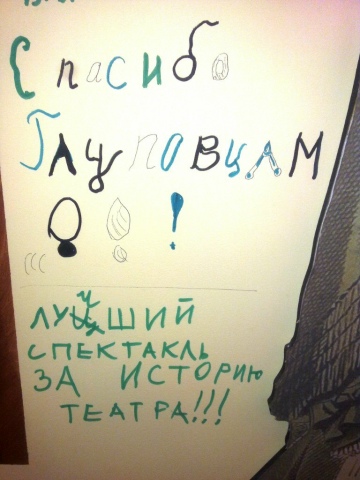 Спасибо
Глуповцам
! ! !
ЛУЧШИЙ
СПЕКТАКЛЬ
ЗА ИСТОРИЮ
ТЕАТРА!!!